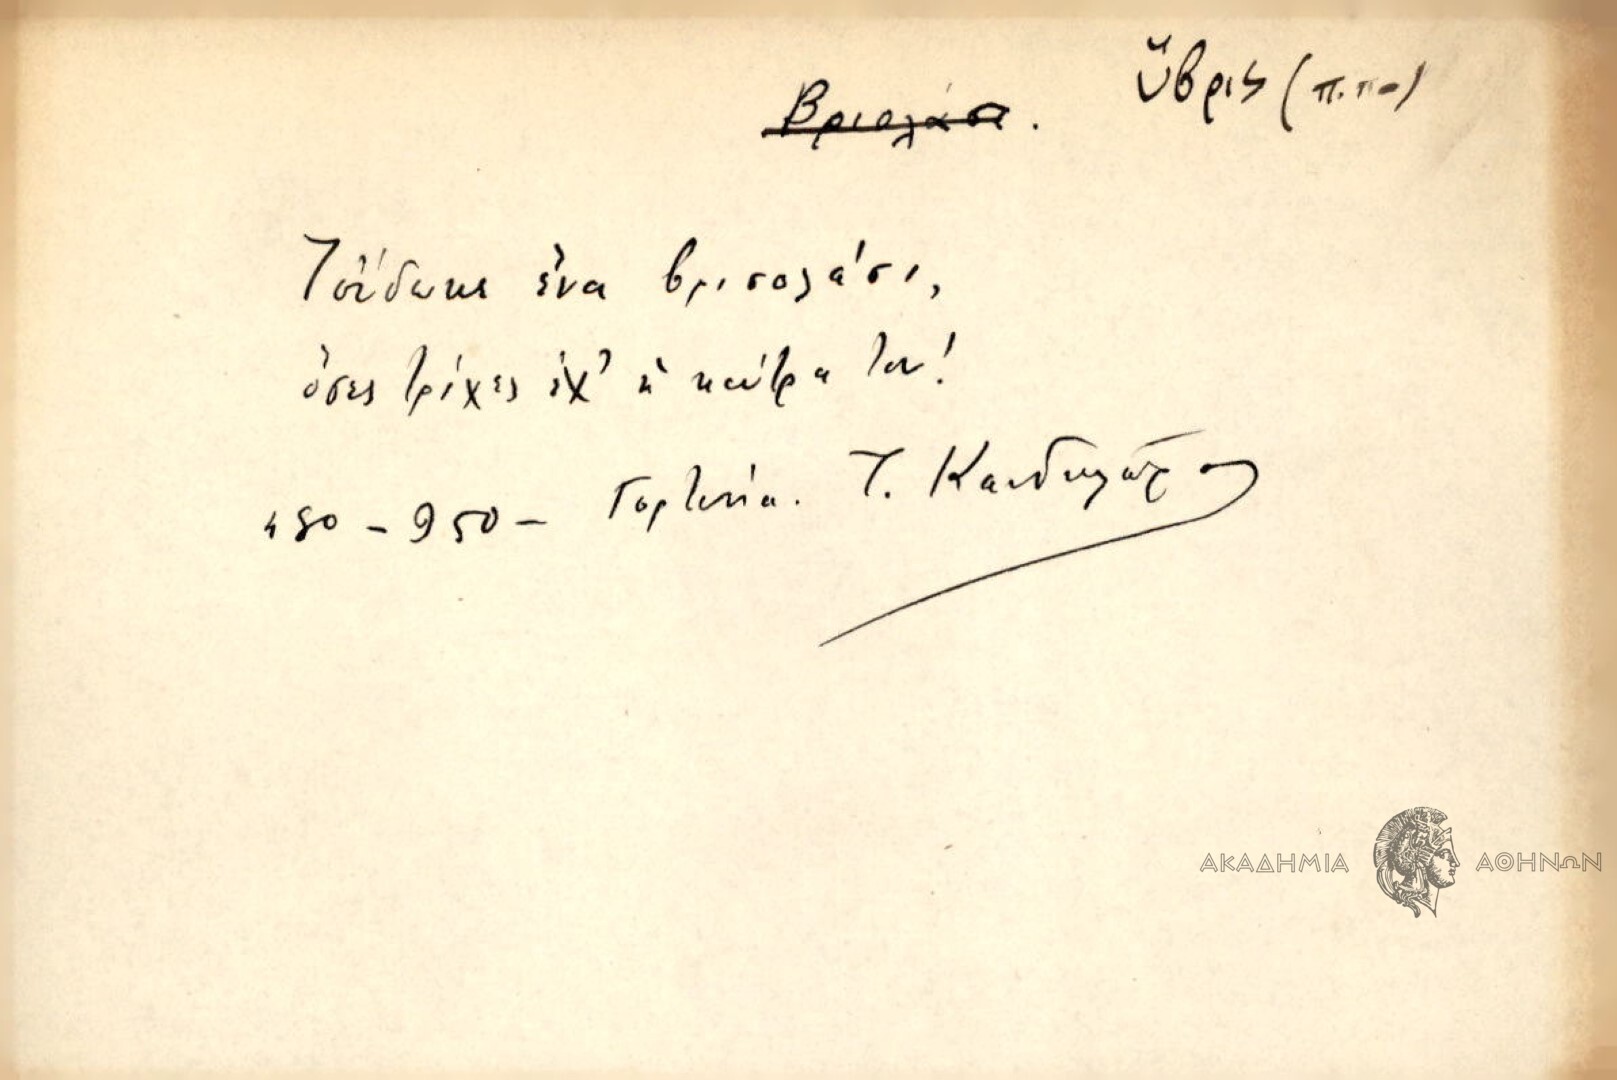 Βρισολάσι. ὕβρις (π.πο)
Τοὔδωκε ἕνα βρισολάσι,
ὅσες τρίχες ἔχ' ἡ κούτρα του!
480 - 950 - Γορτυνία. Τ. Κανδηλῶρος
ΑΚΑΔΗΜΙΑ ΑΘΗΝΩΝ